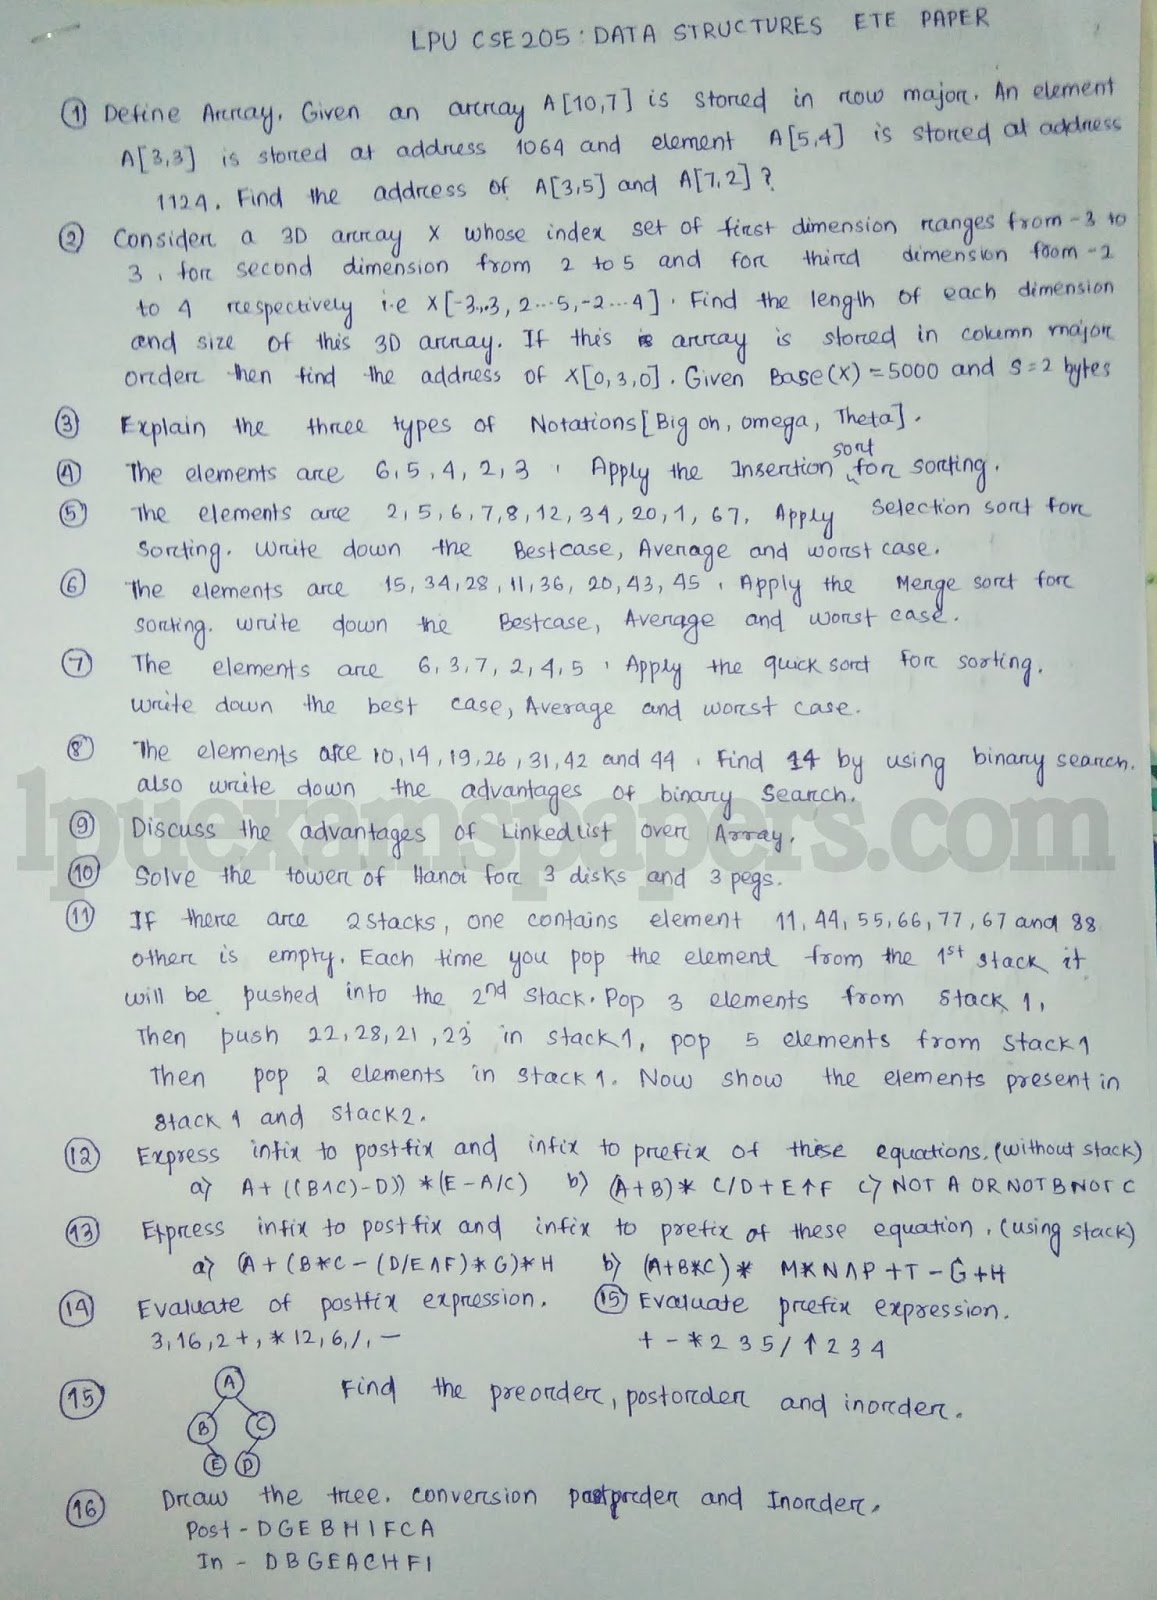 LPU CSE205: DATA STRUCTURES ETE PAPER
① Define Array. Given an array A[10,7] is stored in row major. An element
A[3,3] is stored at address 1064 and element A[5,4] is stored at address
1124. Find the address of A[3,5] and A[7,2]?
② Consider a 3D array X whose index set of first dimension ranges from -3 to
3, for second dimension from 2 to 5 and for third dimension from -2
to 4 respectively i.e X[-3..3, 2...5, -2...4]. Find the length of each dimension
and size of this 3D array. If this array is stored in column major
order then find the address of X[0,3,0]. Given Base(X) = 5000 and S = 2 bytes
③ Explain the three types of Notations [Big oh, omega, Theta].
④ The elements are 6, 5, 4, 2, 3. Apply the Insertion sort for sorting.
⑤ The elements are 2, 5, 6, 7, 8, 12, 34, 20, 1, 67. Apply Selection sort for
Sorting. Write down the Bestcase, Average and worst case.
⑥ The elements are 15, 34, 28, 11, 36, 20, 43, 45. Apply the Merge sort for
sorting. write down the Bestcase, Average and worst case.
⑦ The elements are 6, 3, 7, 2, 4, 5. Apply the quick sort for sorting.
write down the best case, Average and worst case.
⑧ The elements are 10, 14, 19, 26, 31, 42 and 44. Find 14 by using binary search.
also write down the advantages of binary Search.
lpuexamspapers.com
⑨ Discuss the advantages of Linked list over Array.
⑩ Solve the tower of Hanoi for 3 disks and 3 pegs.
⑪ If there are 2 stacks, one contains element 11, 44, 55, 66, 77, 67 and 88
other is empty. Each time you pop the element from the 1st stack it
will be pushed into the 2nd stack. Pop 3 elements from stack 1,
Then push 22, 28, 21, 23 in stack 1, pop 5 elements from stack 1
Then pop 2 elements in stack 1. Now show the elements present in
stack 1 and stack 2.
⑫ Express infix to postfix and infix to prefix of these equations. (without stack)
a) A + ((B∧C) - D)) * (E - A/C) b) (A+B) * C/D + E↑F c) NOT A OR NOT B NOT C
⑬ Express infix to postfix and infix to prefix of these equation. (using stack)
a) (A + (B*C - (D/E∧F) * G) * H b) (A+B*C) * M*N∧P + T - G + H
⑭ Evaluate of postfix expression. ⑮ Evaluate prefix expression.
3, 16, 2 +, * 12, 6, /, - + - * 2 3 5 / ↑ 2 3 4
⑮ Find the preorder, postorder and inorder.
A
B C
E D
⑯ Draw the tree. conversion postorder and Inorder.
Post - D G E B H I F C A
In - D B G E A C H F I